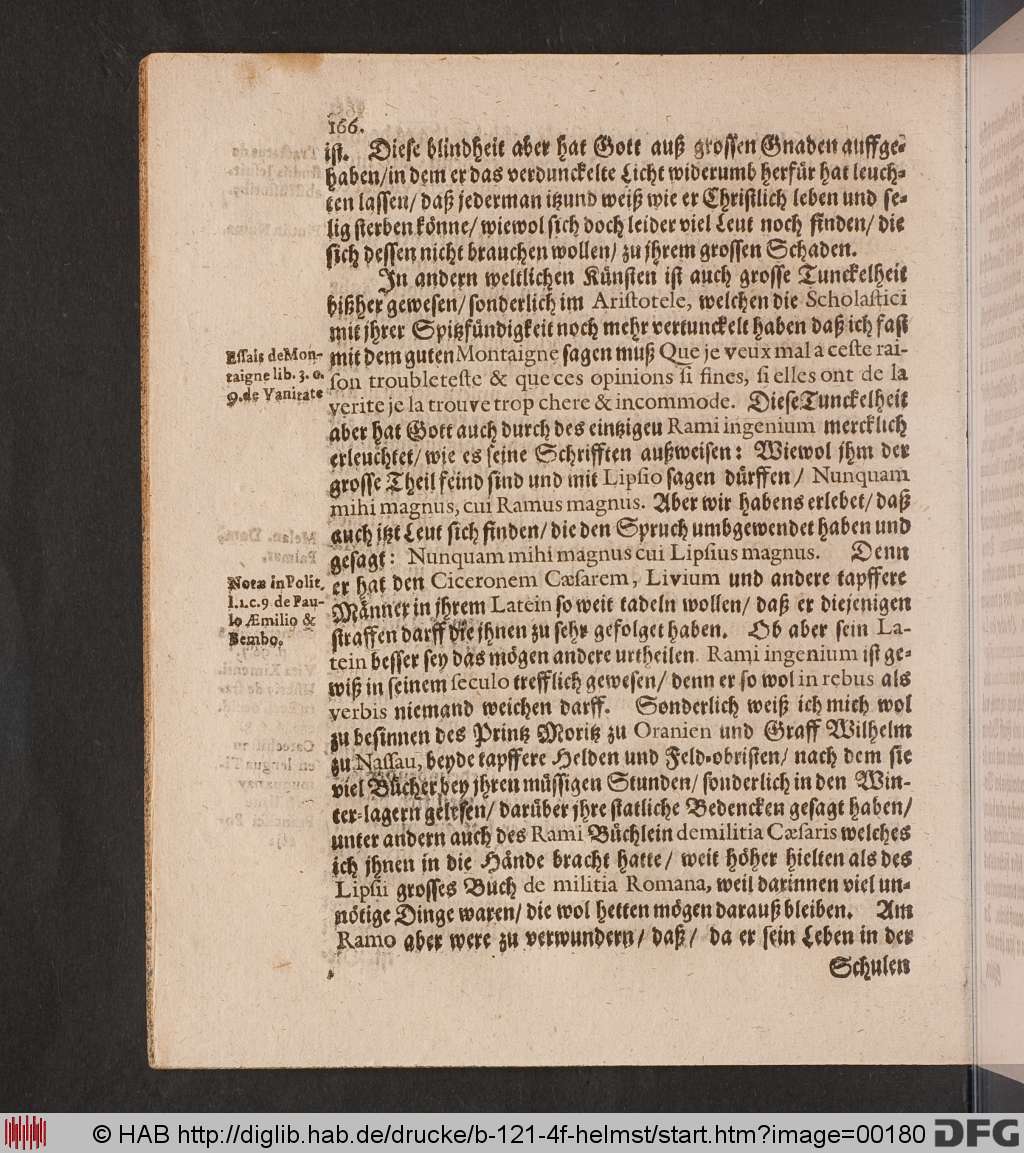 166.
ist. Diese blindheit aber hat Gott auß grossen Gnaden auffge-
haben/in dem er das verdunckelte Licht widerumb herfür hat leuch-
ten lassen/ daß jederman itzund weiß wie er Christlich leben und se-
lig sterben könne/ wiewol sich doch leider viel Leut noch finden/ die
sich dessen nicht brauchen wollen/ zu jhrem grossen Schaden.
In andern weltlichen Künsten ist auch grosse Tunckelheit
bißher gewesen/ sonderlich im Aristotele, welchen die Scholastici
mit jhrer Spitzfündigkeit noch mehr vertunckelt haben daß ich fast
mit dem guten Montaigne sagen muß Que je veux mal a ceste rai-
son troubleteste & que ces opinions si fines, si elles ont de la
verite je la trouve trop chere & incommode. Diese Tunckelheit
aber hat Gott auch durch des eintzigeu Rami ingenium mercklich
erleuchtet/ wie es seine Schrifften außweisen: Wiewol jhm der
grosse Theil feind sind und mit Lipsio sagen dürffen/ Nunquam
mihi magnus, cui Ramus magnus. Aber wir habens erlebet/ daß
auch itzt Leut sich finden/ die den Spruch umbgewendet haben und
gesagt: Nunquam mihi magnus cui Lipsius magnus. Denn
er hat den Ciceronem Cæsarem, Livium und andere tapffere
Männer in jhrem Latein so weit tadeln wollen/ daß er diejenigen
straffen darff die jhnen zu sehr gefolget haben. Ob aber sein La-
tein besser sey das mögen andere urtheilen. Rami ingenium ist ge-
wiß in seinem seculo trefflich gewesen/ denn er so wol in rebus als
verbis niemand weichen darff. Sonderlich weiß ich mich wol
zu besinnen des Printz Moritz zu Oranien und Graff Wilhelm
zu Nassau, beyde tapffere Helden und Feld-obristen/ nach dem sie
viel Bücher bey jhren müssigen Stunden/ sonderlich in den Win-
ter-lagern gelesen/ darüber jhre statliche Bedencken gesagt haben/
unter andern auch des Rami Büchlein demilitia Cæsaris welches
ich jhnen in die Hände bracht hatte/ weit höher hielten als des
Lipsii grosses Buch de militia Romana, weil darinnen viel un-
nötige Dinge waren/ die wol hetten mögen darauß bleiben. Am
Ramo aber were zu verwundern/ daß/ da er sein Leben in der
Schulen
Essais deMon-
taigne lib. 3. c.
9. de Vanitate
Notæ in Polit.
l.1.c.9 de Pau-
lo Æmilio &
Bembo.
© HAB http://diglib.hab.de/drucke/b-121-4f-helmst/start.htm?image=00180 DFG